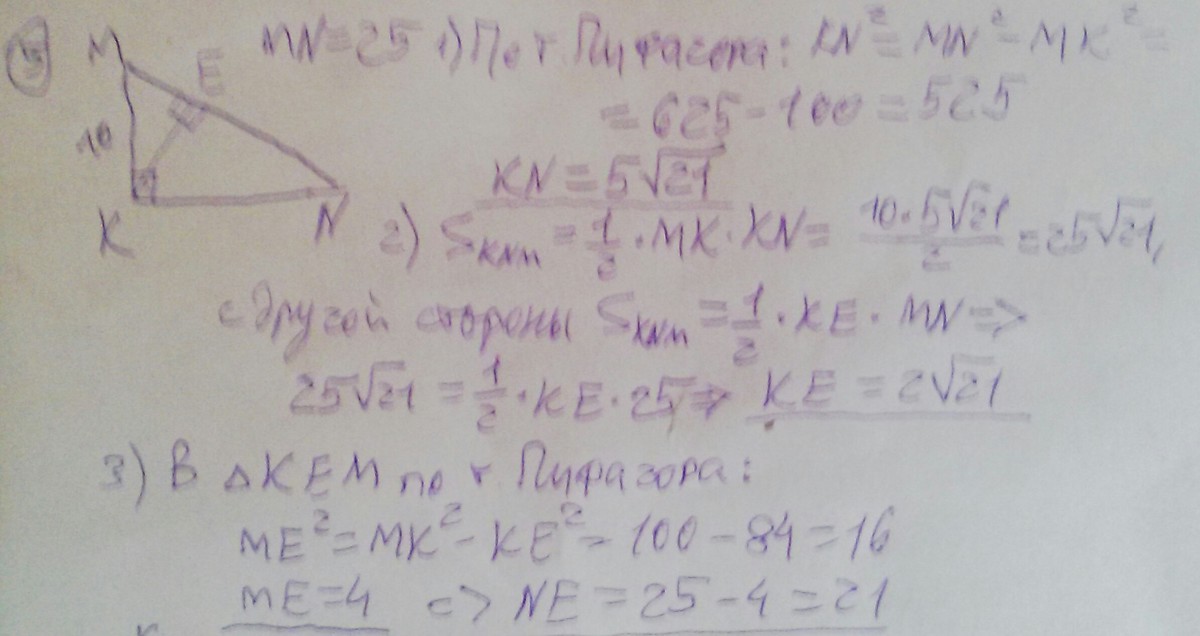 5
M
E
10
K
N
MN=25 1) По т Пифагора: KN² = MN² - MK² =
= 625 - 100 = 525
KN = 5√21
2) S_KNM = 1/2 · MK · KN = 10·5√21/2 = 25√21,
с другой стороны S_KNM = 1/2 · KE · MN =>
25√21 = 1/2 · KE · 25 => KE = 2√21
3) В ΔKEM по т Пифагора:
ME² = MK² - KE² = 100 - 84 = 16
ME=4 => NE = 25 - 4 = 21